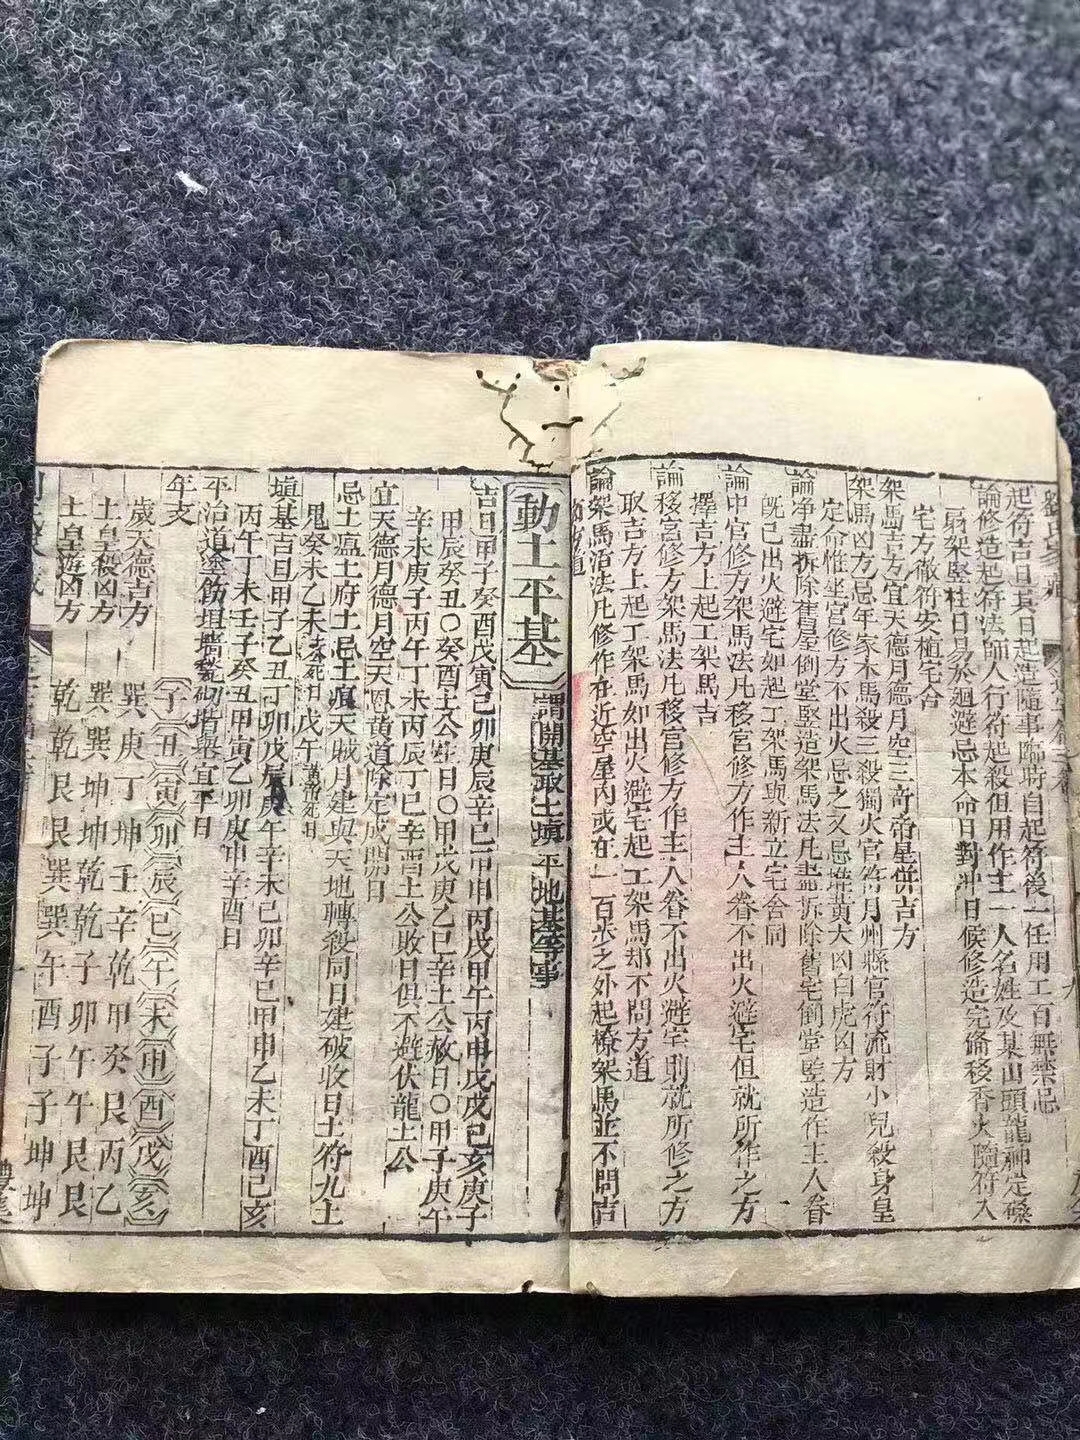 起符吉日其日起造隨事臨時自起符後一任用工百無禁忌
論修造起符法師人行符起殺但用作主一人名姓及某山頭龍神定磉
扇架竪柱日易於廻避忌本命日對冲日候修造完備移香火隨符入
宅方徹符安植宅舍
架馬吉方宜天德月德月空三奇帝星併吉方
架馬凶方忌年家木馬殺三殺獨火官符月州縣官符流財小兒殺身皇
定命惟坐宮修方不出火忌之又忌堆黃大凶白虎凶方
論净盡拆除舊屋倒堂竪造架馬法凡盡拆除舊宅倒堂竪造作主人眷
既已出火避宅如起工架馬與新立宅舍同
論中宮修方架馬法凡移宮修方作主人眷不出火避宅但就所作之方
擇吉方上起工架馬吉
論移宮修方架馬法凡移宮修方作主人眷不出火避宅則就所修之方
取吉方上起工架馬如出火避宅起工架馬却不問方道
論架馬活法凡修作在近空屋內或在一百步之外起橑架馬並不問吉
方道
動土平基 謂開基取土填平地基等事
吉日甲子癸酉戊寅己卯庚辰辛巳甲申丙戌甲午丙申戊戌己亥庚子
甲辰癸丑○癸酉土公生日○甲戌庚乙巳辛土公赦日○甲子庚午
辛未庚子丙午丁未丙辰丁巳辛酉土公敗日俱不避伏龍土公
宜天德月德月空天恩黃道除定成開日
忌土瘟土府土忌土痕天賊月建與天地轉殺同日建破收日土符九土
鬼癸未乙未 戊午
填基吉日甲子乙丑丁卯戊辰庚午辛未己卯辛巳甲申乙未丁酉己亥
丙午丁未壬子癸丑甲寅乙卯庚申辛酉日
平治道塗飭垣墻甃砌堦宜平日
年支 子 丑 寅 卯 辰 巳 午 未 申 酉 戌 亥
歲天德吉方 巽 庚 丁 坤 壬 辛 乾 甲 癸 艮 丙 乙
土皇殺凶方 巽 巽 坤 坤 乾 乾 子 卯 午 午 艮 艮
土皇遊凶方 乾 乾 艮 艮 巽 巽 午 酉 子 子 坤 坤